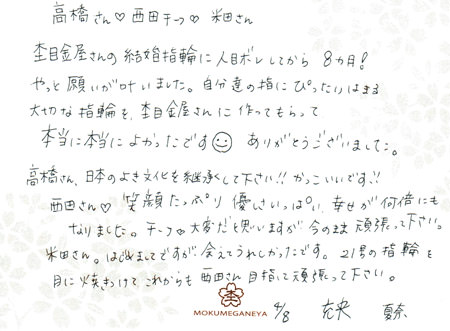 高橋さん♡ 西田チーフ♡ 米田さん
杢目金屋さんの結婚指輪に一目ボレしてから 8ヵ月!
やっと願いが叶いました。自分達の指にぴったりはまる
大切な指輪を、杢目金屋さんに作ってもらって
本当に本当によかったです☺ ありがとうございました。
高橋さん、日本のよき文化を継承して下さい!! かっこいいです!!
西田さん♡ 笑顔たっぷり 優しさいっぱい、幸せが何倍にも
なりました。チーフ♡大変だと思いますが 今のまま 頑張って下さい。
米田さん。はじめましてですが、会えてうれしかったです。21号の指輪を
目に焼きつけて これからも 西田さん目指して頑張って下さい。
MOKUMEGANEYA
4/8 充央 夏奈